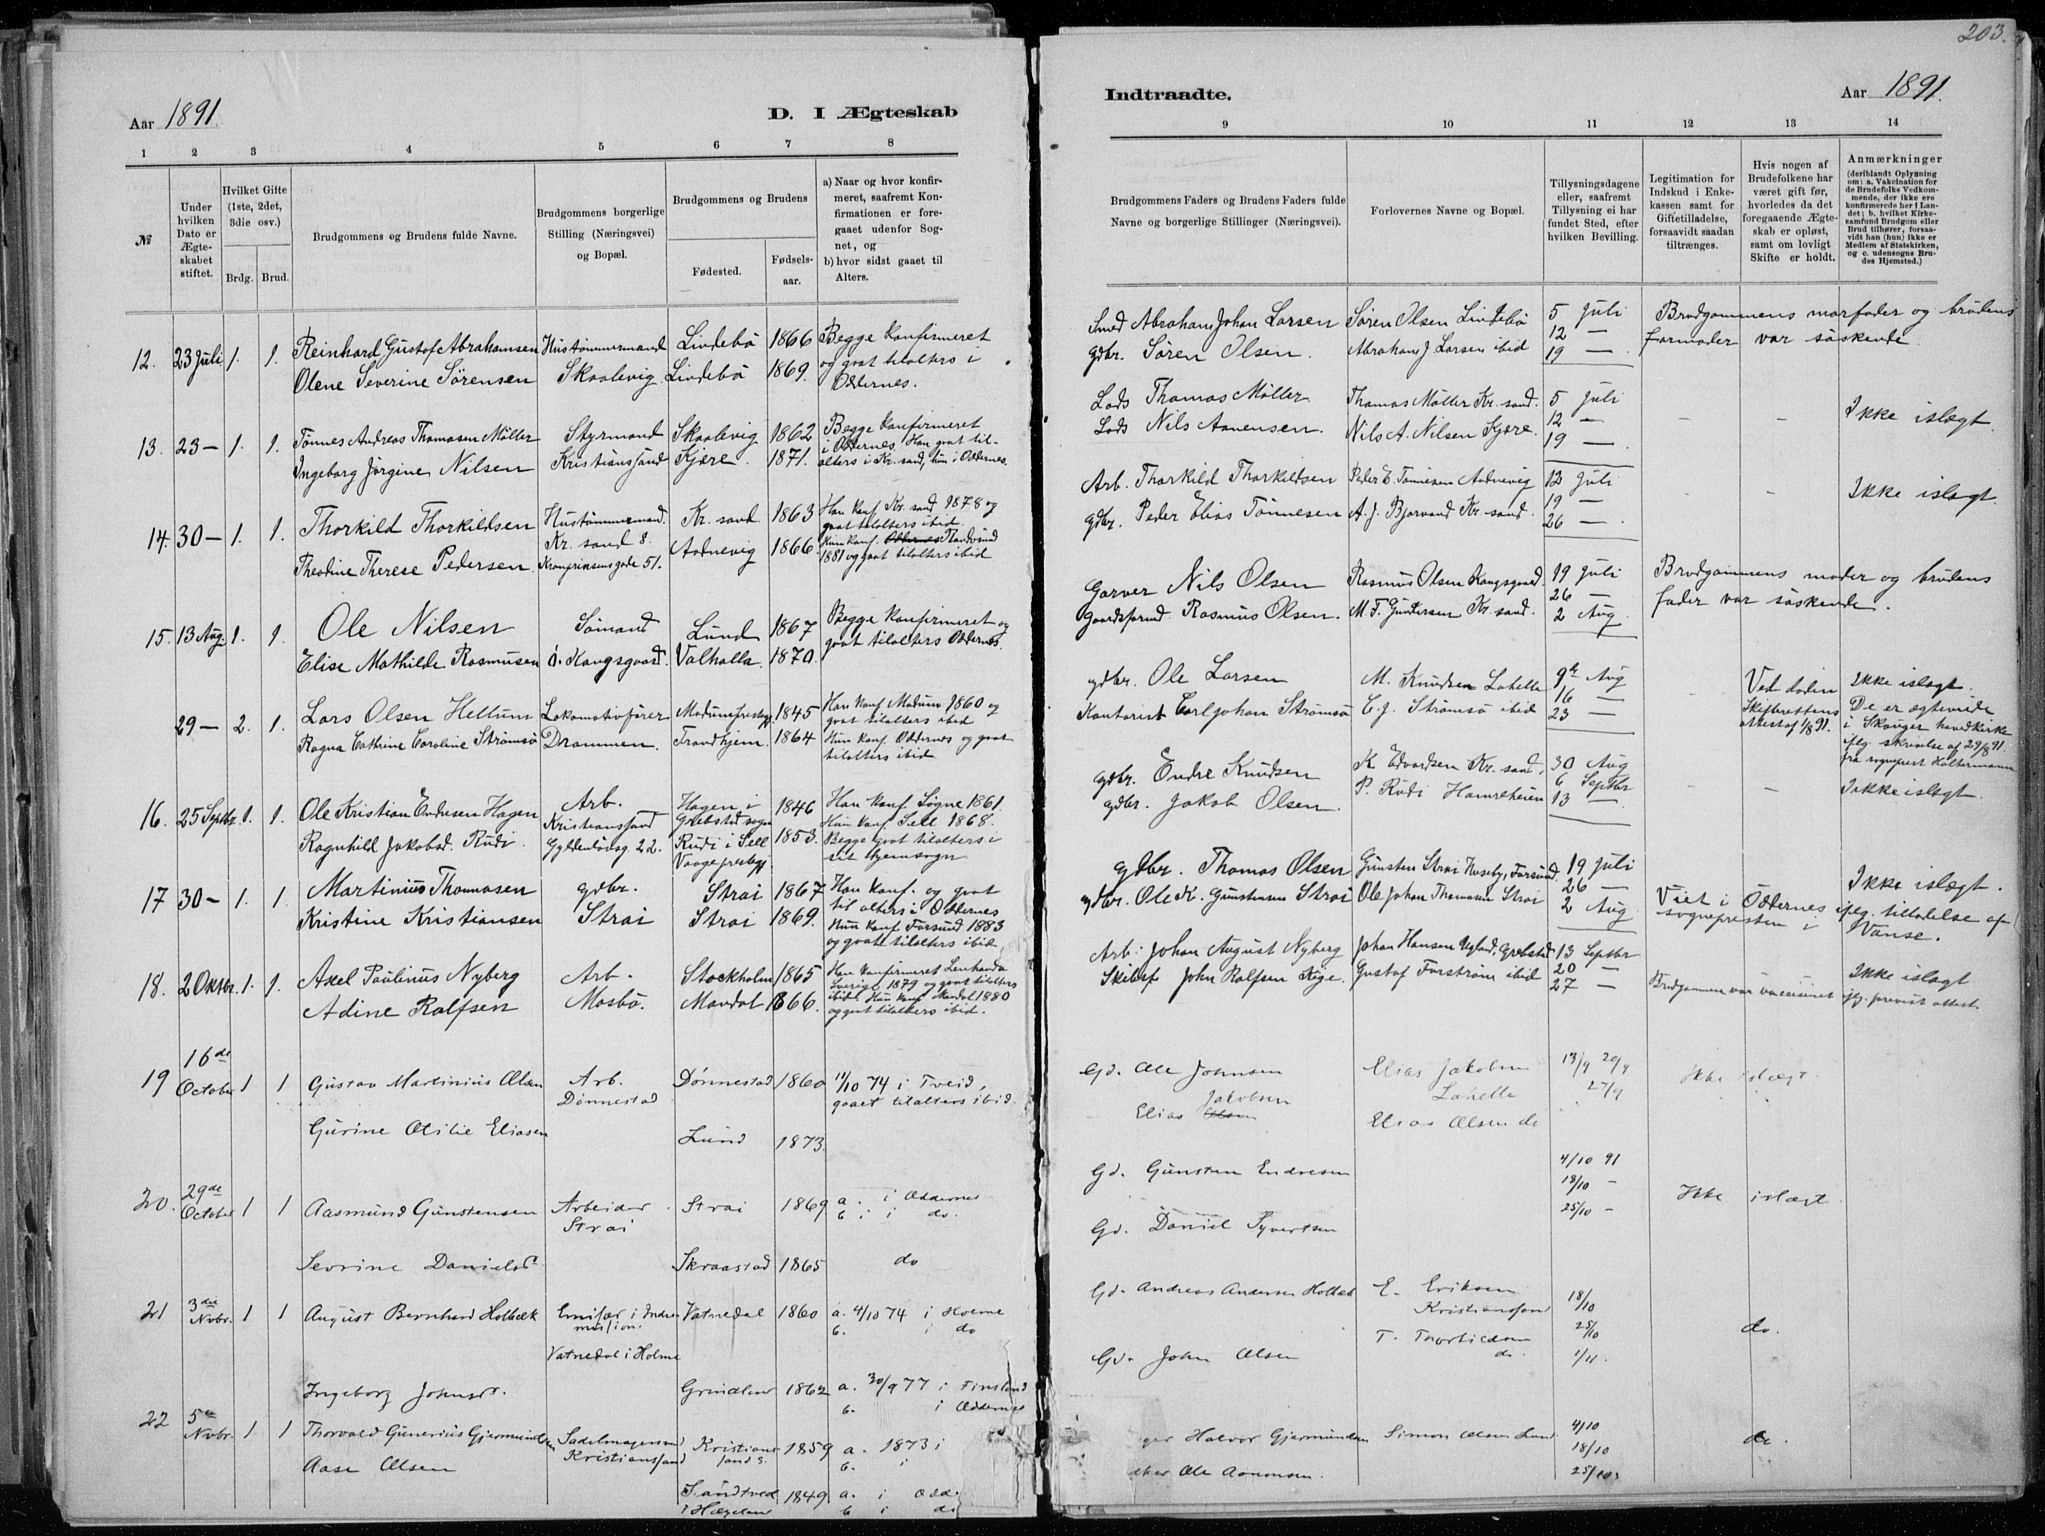 203.
Aar 1891.
D. I Ægteskab
1 2 3 4 5 6 7 8
№
Under hvilken Dato er Ægteskabet stiftet.
Hvilket Gifte (1ste, 2det, 3die osv.)
Brdg. Brud.
Brudgommens og Brudens fulde Navne.
Brudgommens borgerlige Stilling (Næringsvei) og Bopæl.
Brudgommens og Brudens
Fødested.
Fødselsaar.
a) Naar og hvor konfirmeret, saafremt Konfirmationen er foregaaet udenfor Sognet, og
b) hvor sidst gaaet til Alters.
12. 23 Juli 1. 1. Reinhard Gustof Abrahamsen Hustømmermand Lindebø 1866 Begge konfirmeret
Olene Severine Sørensen Skaalevig Lindebø 1869. og gaat tilalters i
Oddernes.
13. 23 — 1. 1. Tønnes Andreas Thomasen Møller Styrmand Skaalevig 1862 Begge konfirmeret
i Oddernes, Han gaat til-
Ingeborg Jørgine Nilsen Kristianssand Kjære. 1871. alters i Kr. sand, hun i Oddernes.
14. 30 — 1. 1. Thorkild Thorkildsen Hustømmermand Kr. sand 1863 Han konf. Kr. sand 1878 og
gaat tilalters ibid.
Kr. sand 8. Hun konf. Oddernes Randøsund
Theodine Therese Pedersen Kronprinsensgade 51. Aadnevig 1866 1881 og gaat tilalters ibid
15. 13 Aug. 1. 1. Ole Nilsen Sømand Lund 1867 Begge konfirmeret og
Elise Mathilde Rasmusen Ø. Kongsgaard. Valhalla. 1870. gaat tilalters Oddernes.
29 — 2. 1. Lars Olsen Hellum Lokomotivfører Modumprestgj. 1845 Han konf. Modum 1860 og
gaat tilalters ibid
Ragna Cathrine Caroline Strømsø Drammen. Trondhjem. 1864 Hun konf. Oddernes og gaat
tilalters ibid
16. 25 Septbr. 1. 1. Ole Kristian Endresen Hagen Arb. Hagen i 1846 Han konf. Søgne 1861.
Kristianssand Grebstad sogn Hun konf. Sell 1868.
Ragnhild Jakobsd. Rudi. Gyldenløvsg. 22. Rudi i Sell 1853. Begge gaat tilalters i
Vaage prestegj. sit hjemsogn
17 30 — 1. 1. Martinius Thomasen gdbr. Strai 1867 Han konf. og gaat
til alters i Oddernes
Kristine Kristiansen Strai Strai 1869. Hun konf. Farsund 1883
og gaat tilalters ibid.
18. 2 Oktbr. 1. 1. Axel Paulinus Nyberg Arb. Stockholm 1865 Han konfirmeret Lenhanda
Sverige 1879 og gaat tilalters
Adine Ralfsen Mosbø. Mandal 1866. ibid. Hun konf. Mandal 1880
og gaat tilalters ibid.
19 16de October 1 1 Gustav Martinius Olsen Arb. Dønnestad 1860 11/10 74 i Tveid,
Dønnestad gaaet tilalters ibid.
Gurine Otilie Eliasen Lund 1873.
20. 29de October 1 1 Aasmund Gunstensen Arbeider Strai 1869 a. i Oddernes
Strai b. i do.
Sevrine Danielsd. Skraastad 1865 do
21 3die Nvbr. 1 1 August Bernhard Holbæk Emisær i Indremission. Vatnedal 1860 a. 4/10 74 i Holme
b. i do
Vatnedal i Holme
Ingeborg Johnsd. 1862 a. 30/9 77 i Finsland
b. i Oddernes
22 5te Nvbr. 1 1 Thorvald Gunerius Gjermundsen Sadelmagersvend Kristianssand S. 1859 a. 1873 i
Aase Olsen Kristianssand b. i
Sandtved 1849 a. i Odd
b i do
Indtraadte.
Aar 1891.
9 10 11 12 13 14
Brudgommens Faders og Brudens Faders fulde Navne og borgerlige Stillinger (Næringsvei).
Forlovernes Navne og Bopæl.
Tillysningsdagene eller, saafremt Tillysning ei har fundet Sted, efter hvilken Bevilling.
Legitimation for Indskud i Enkekassen samt for Giftetilladelse, forsaavidt saadan tiltrænges.
Hvis nogen af Brudefolkene har været gift før, hvorledes da det foregaaende Ægteskab er opløst, samt om lovligt Skifte er holdt.
Anmærkninger (deriblandt Oplysning om: a. Vakcination for de Brudefolks Vedkommende, der ikke ere konfirmerede her i Landet; b. hvilket Kirkesamfund Brudgom eller Brud tilhører, forsaavidt han (hun) ikke er Medlem af Statskirken, og c. udensogns Brudes Hjemsted.)
Smed Abraham Johan Larsen Søren Olsen Lindebø 5 Juli Brudgommens morfader og brudens
12 —
gdbr. Søren Olsen. Abraham J. Larsen ibid 19 — farmoder var søskende.
Lods Thomas Møller Thomas Møller Kr. sand. 5 Juli Ikke islægt.
12 —
Lods Nils Aanensen. Nils A. Nilsen Kjære. 19 —
Arb. Thorkild Thorkildsen Peder E. Tønnesen Aadnevig 12 Juli Ikke islægt.
19 —
gdbr. Peder Elias Tønnesen A. J. Bjorvand Kr. sand. 26 —
Garver Nils Olsen Rasmus Olsen Kongsgaard. 19 Juli Brudgommens moder og brudens
26 —
Gaardsforvnd. Rasmus Olsen. M. F. Gundersen Kr. sand. 2 Aug. fader var søskende.
gdbr. Ole Larsen M. Knudsen Lahelle 9de Aug Ved døden Ikke islægt.
16 — Skifterettens De er ægteviede
Kontorist Carl Johan Strømsø C. J. Strømsø ibid 23 — attest af 1/8 91. i Skouger hovedkirke
iflg. skrivelse af 29/8 91.
fra sogneprest Haltermann
gdbr. Endre Knudsen K. Edvardsen Kr. sand. 30 Aug Ikke islægt.
6 Septbr
gdbr. Jakob Olsen. P. Rudi Hamreheien 13 —
gdbr. Thomas Olsen Gunsten Strai Huseby, Farsund 19 Juli Ikke islægt.
26 —
gdbr. Ole K. Gunstensen Strai Ole Johan Thomasen Strai 2 Aug Viet i Oddernes iflg. tilladelse af
sognepresten i Vanse.
Arb. Johan August Nyberg Johan Hansen Ugland, Grebstad 13 Septbr Ikke islægt
20 —
Skibsf John Ralfsen Kige. Gustaf Forstrøm ibid 27 — Brudgommen var vaccineret iflg. previst attest.
Gd. Ole Johnsen Elias Jakobsen 13/9 20/9 Ikke islægt.
Lahelle 27/9
Elias Olsen Jakobsen Elias Olsen do
Gd. Gunsten Endresen 4/10 91
18/10 — Ikke islægt.
Gd. Daniel Syvertsen 25/10 —
Gd. Andreas Andersen Holbæk E. Eriksen 18/10
Kristianssand
25/10 do.
Gd. John Olsen do. 1/11.
Halvor Gjermundsen Simon Olsen Lund 4/10
18/10 do.
Ole Aanensen. 25/10.